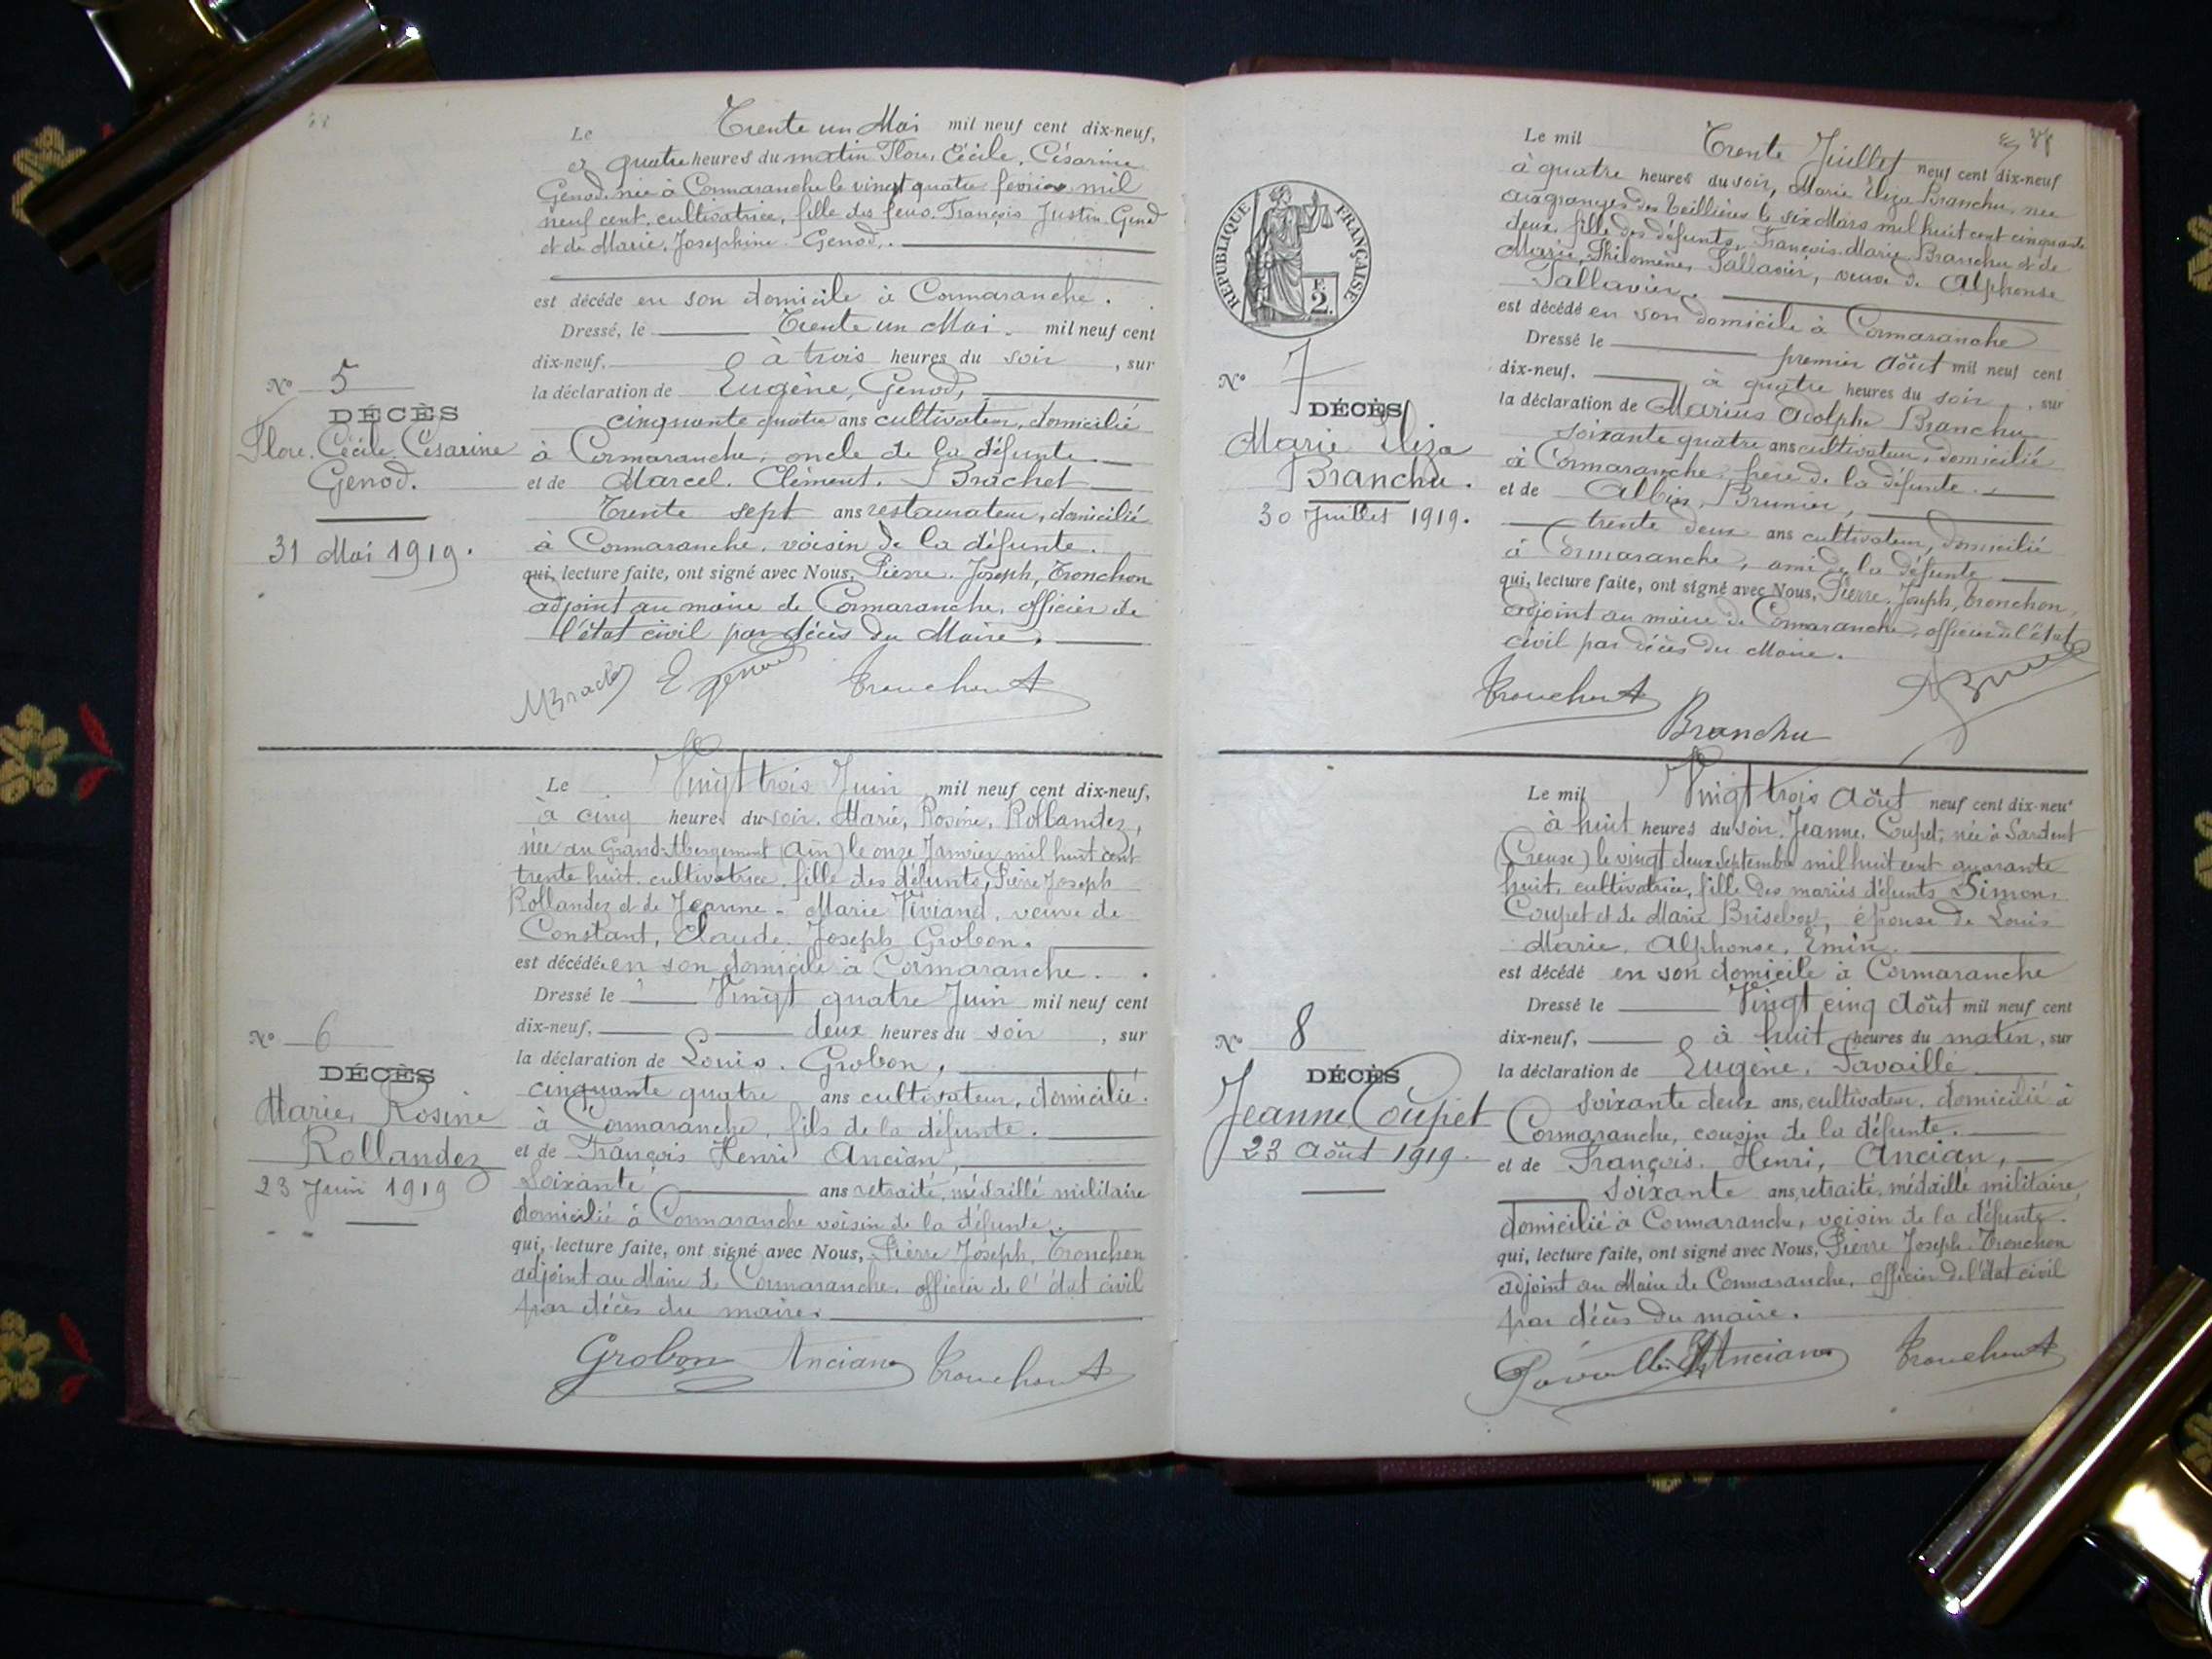 Le Trente un Mai mil neuf cent dix-neuf,
à quatre heures du matin Flore, Cécile, Césarine
Genod, née à Cormaranche le vingt quatre février mil
neuf cent, cultivatrice, fille des feus François Justin Genod
et de Marie, Josephine Genod,.
est décéde en son domicile à Cormaranche.
Dressé, le Trente un Mai mil neuf cent
dix-neuf, à trois heures du soir, sur
la déclaration de Eugène, Genod,
cinquante quatre ans cultivateur, domicilié
à Cormaranche, oncle de la défunte
et de Marcel. Clément. Brachet
Trente sept ans restaurateur, domicilié
à Cormaranche, voisin de la défunte.
qui, lecture faite, ont signé avec Nous, Pierre. Joseph, Tronchon
adjoint au maire de Cormaranche, officier de
l'état civil par décès du Maire.
N° 5
DÉCÈS
Flore. Cécile. Césarine
Genod.
31 Mai 1919.
MBrachet E genod
Le Vingt trois Juin mil neuf cent dix-neuf,
à cinq heures du soir. Marie, Rosine, Rollandez,
née au Grand-Abergement (Ain) le onze Janvier mil huit cent
trente huit, cultivatrice, fille des défunts, Pierre Joseph
Rollandez et de Jeanne - Marie Viviand, veuve de
Constant, Claude. Joseph Grobon.
est décédée en son domicile à Cormaranche.
Dressé le Vingt quatre Juin mil neuf cent
dix-neuf, deux heures du soir, sur
la déclaration de Louis. Grobon,
cinquante quatre ans cultivateur, domicilié
à Cormaranche, fils de la défunte.
et de François Henri Ancian,
Soixante ans retraité, médaillé militaire
domicilié à Cormaranche voisin de la défunte.
qui, lecture faite, ont signé avec Nous, Pierre Joseph, Tronchon
adjoint au Maire de Cormaranche, officier de l'état civil
par décès du maire.
N° 6
DÉCÈS
Marie, Rosine
Rollandez
23 Juin 1919
Grobon Ancian
Le mil Trente Juillet neuf cent dix-neuf
à quatre heures du soir, Marie Eliza Branchu, née
aux granges des Teillières le six Mars mil huit cent cinquante
deux, fille des défunts, François-Marie Branchu et de
Marie, Philomène, Tallavier, veuve de Alphonse
Tallavier.
est décédé en son domicile à Cormaranche
Dressé le premier Août mil neuf cent
dix-neuf, à quatre heures du soir, sur
la déclaration de Marius Adolphe Branchu
soixante quatre ans cultivateur, domicilié
à Cormaranche, frère de la défunte.
et de Albin, Brunier,
trente deux ans cultivateur, domicilié
à Cormaranche, ami de la défunte
qui, lecture faite, ont signé avec Nous, Pierre, Joseph, Tronchon,
adjoint au maire de Cormaranche, officier de l'état
civil par décès du Maire.
RÉPUBLIQUE FRANÇAISE
F.
2.
N° 7
DÉCÈS
Marie Eliza
Branchu.
30 Juillet 1919.
Branchu
Le mil Vingt trois Août neuf cent dix-neuf
à huit heures du soir. Jeanne. Coupet, née à Sardent
(Creuse) le vingt deux Septembre mil huit cent quarante
huit, cultivatrice, fille des mariés défunts Simon,
Coupet et de Marie Brisebos, épouse de Louis
Marie. Alphonse. Emin.
est décédé en son domicile à Cormaranche
Dressé le Vingt cinq Août mil neuf cent
dix-neuf, à huit heures du matin, sur
la déclaration de Eugène, Favaille
soixante deux ans, cultivateur, domicilié à
Cormaranche, cousin de la défunte.
et de François. Henri, Ancian,
Soixante ans, retraité, médaillé militaire,
domicilié à Cormaranche, voisin de la défunte.
qui, lecture faite, ont signé avec Nous, Pierre Joseph. Tronchon
adjoint au Maire de Cormaranche, officier de l'état civil
par décès du maire.
N° 8
DÉCÈS
Jeanne Coupet
23 Août 1919
Ancian